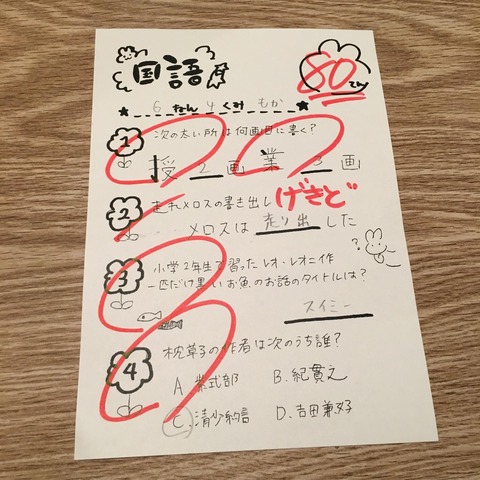 国語
80てん
6ねん4くみもか
1 次の太い所は何画目に書く?
授 2 画 業 3 画
2 走れメロスの書き出し げきど
メロスは 走り出 した
?
3 小学2年生で習ったレオ・レオニ作
一匹だけ黒いお魚のお話のタイトルは?
スイミー
4 枕草子の作者は次のうち誰?
A. 紫式部 B. 紀貫之
C. 清少納言 D. 吉田兼好